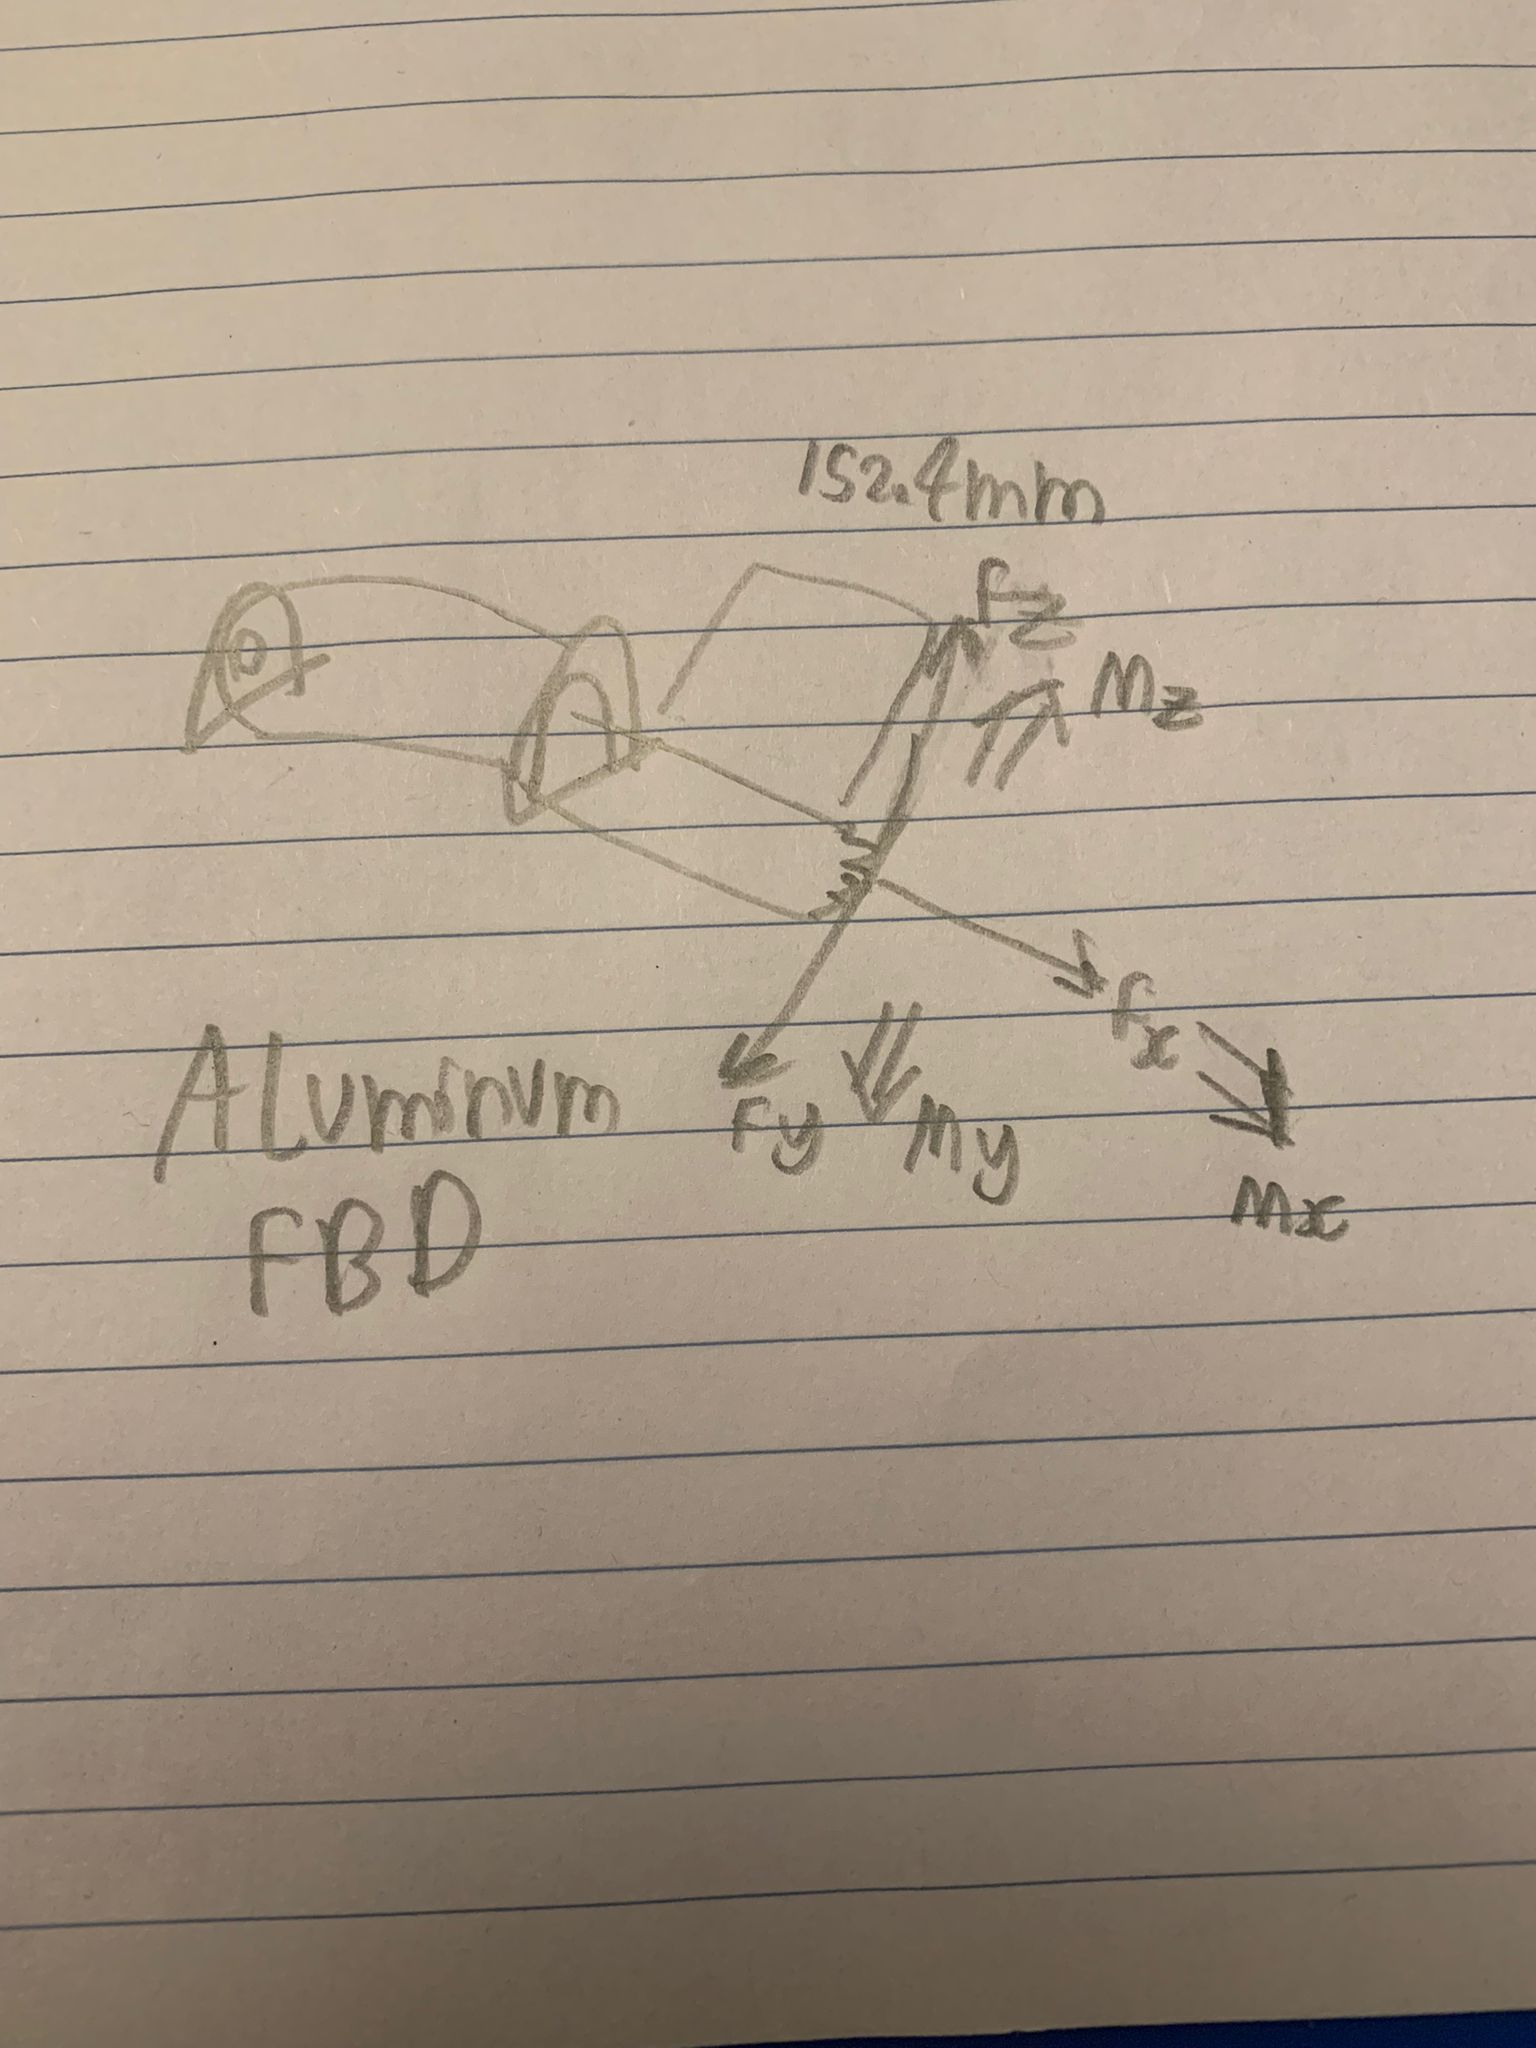 152.4mm
Fz
Mz
Fx
Fy
My
Mx
ALuminum
FBD